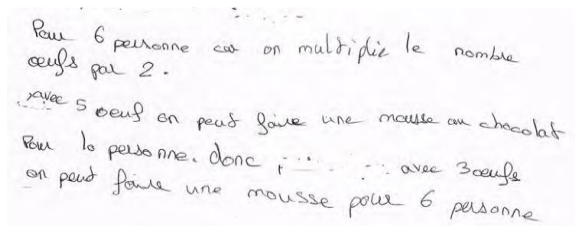 Pour 6 personne car on multiplie le nombre
œufs par 2.
avec 5 oeuf on peut faire une mousse au chocolat
Pour 10 personne. donc avec 3 œufs
on peut faire une mousse pour 6 personne